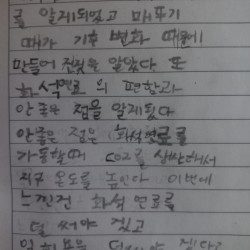 를 알게되었고 메뚜기
떼가 기후 변화 때문에
만들어 진것을 알았다 또
화석연료의 편한과
안좋은 점을 알게됬다
안좋은 점은 화석연료를
가동할때 CO2를 상산해서
지구 온도를 높인다 이번에
느낀건 화석 연료를
덜 써야 겠고